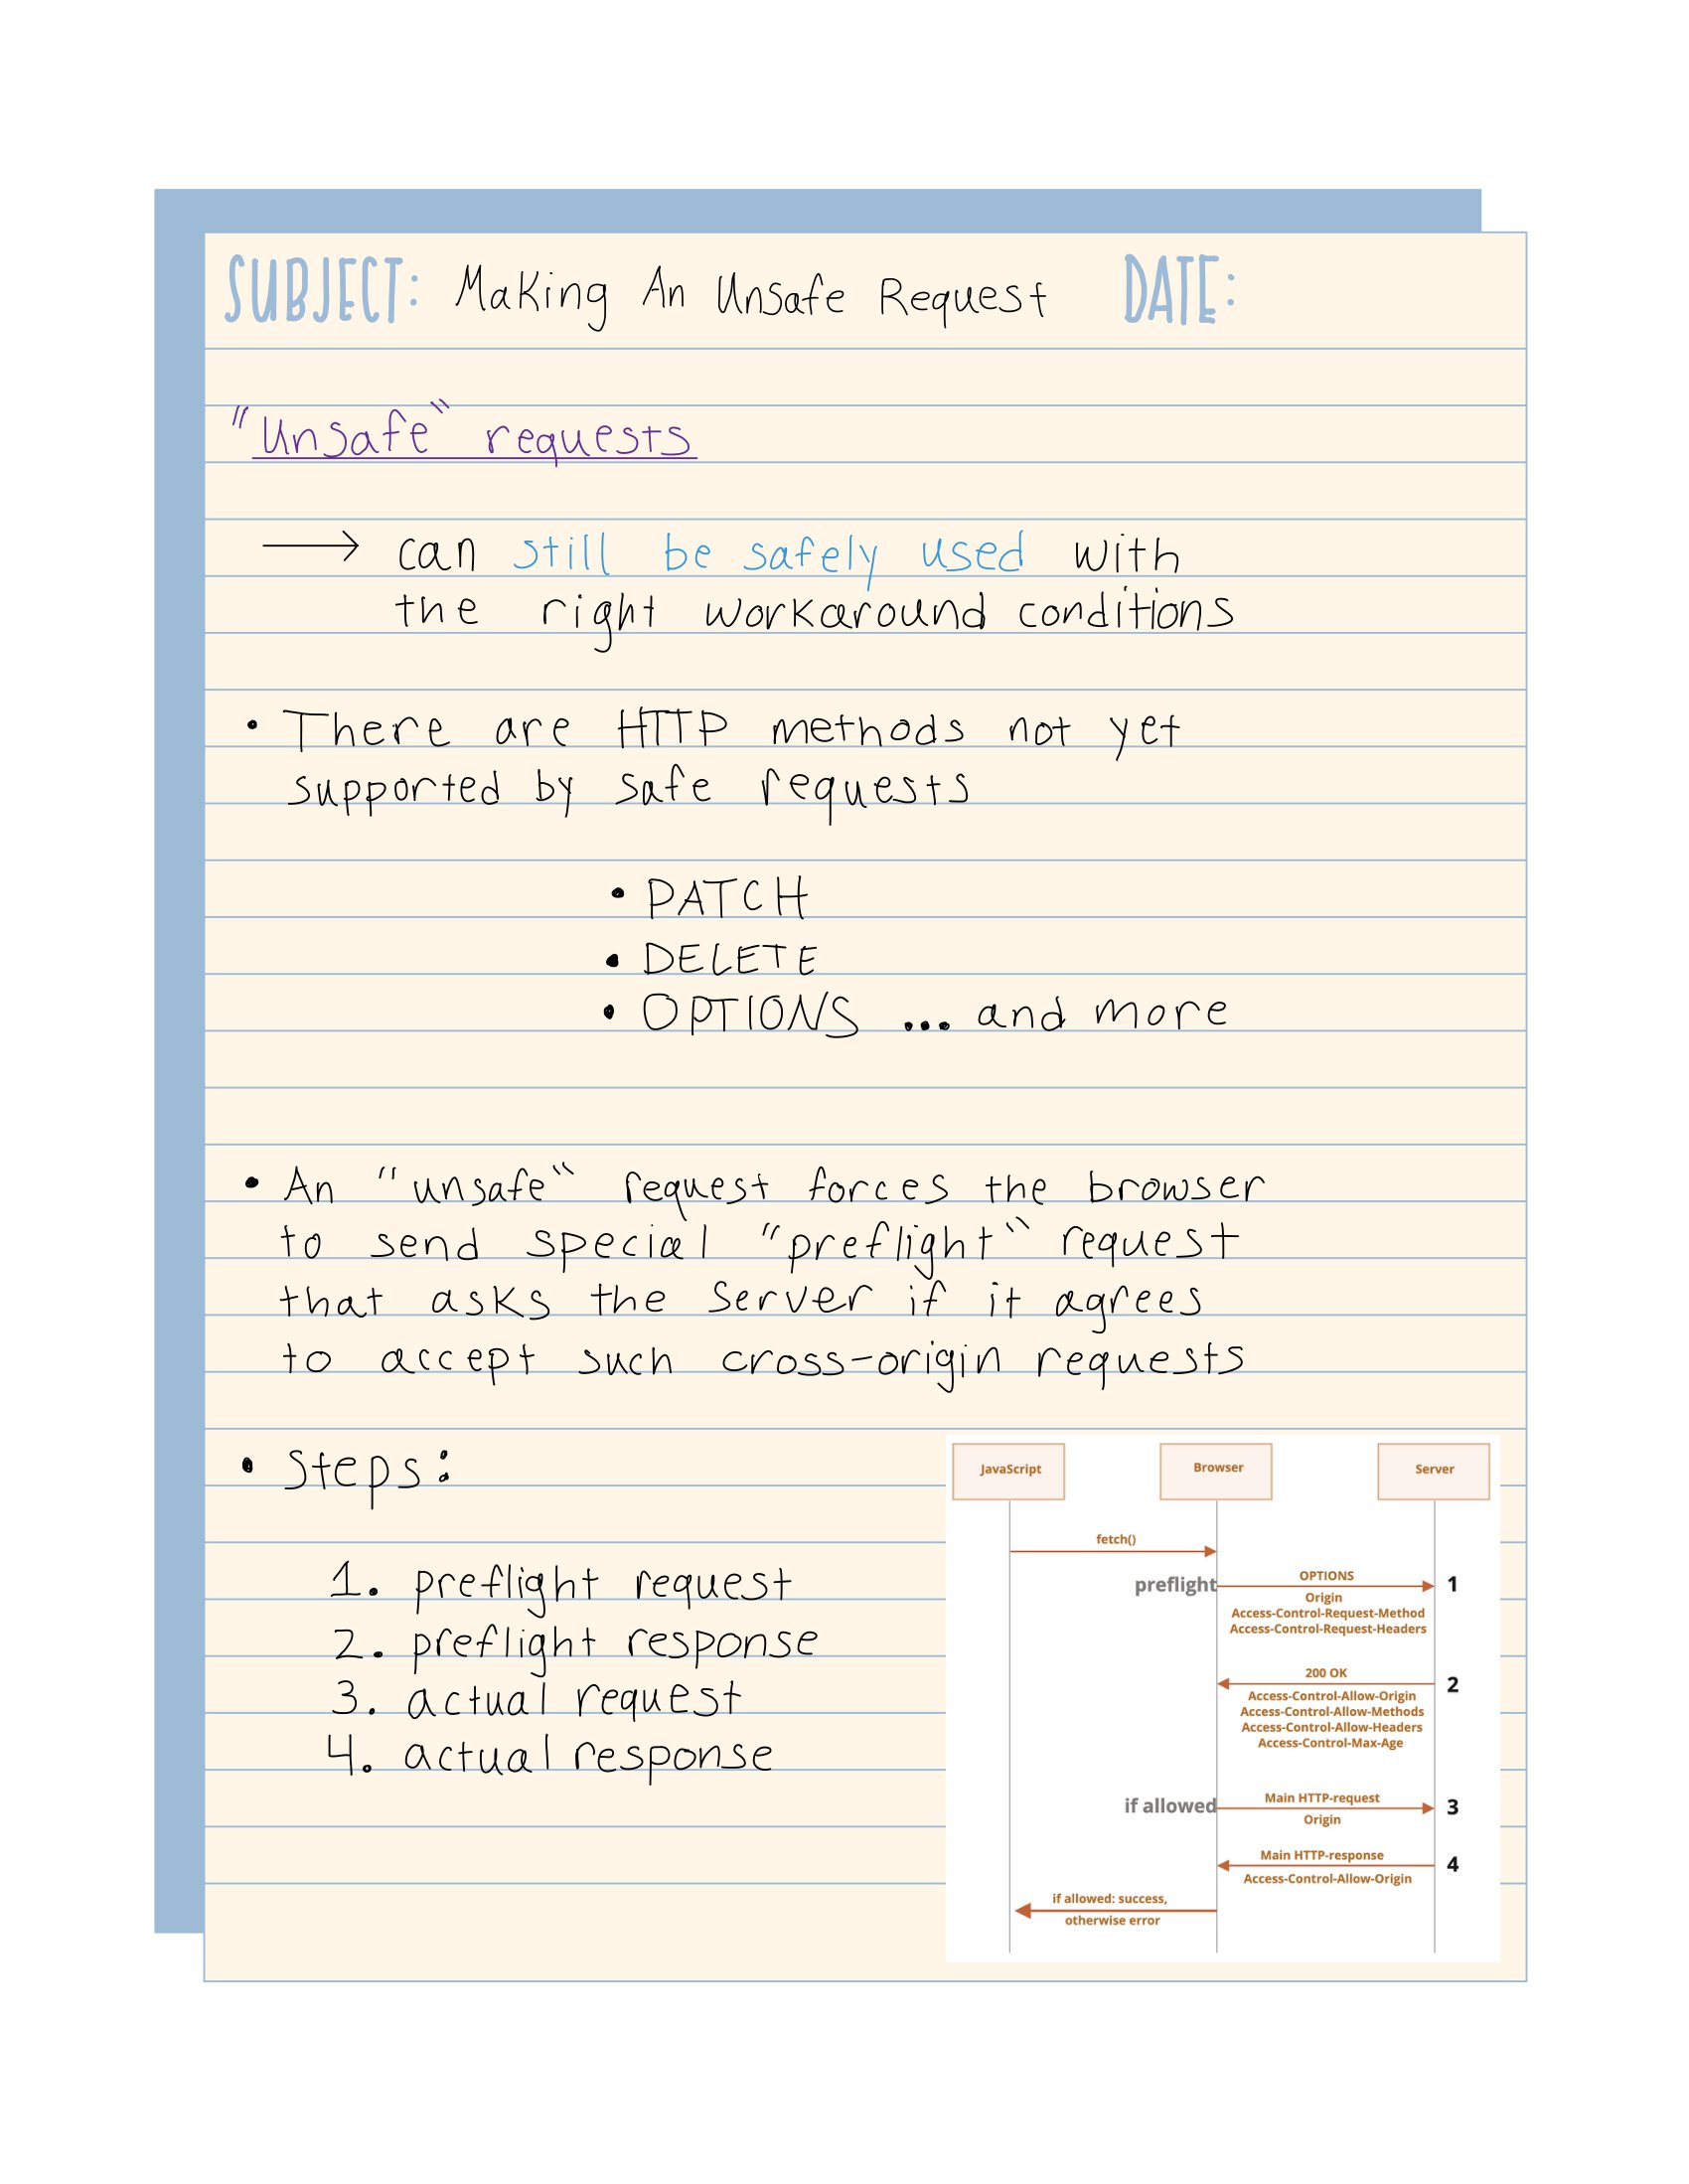 SUBJECT: Making An Unsafe Request DATE:
"Unsafe" requests
→ can still be safely used with
the right workaround conditions
• There are HTTP methods not yet
supported by safe requests
• PATCH
• DELETE
• OPTIONS ... and more
• An "unsafe" request forces the browser
to send special "preflight" request
that asks the server if it agrees
to accept such cross-origin requests
• Steps:
1. preflight request
2. preflight response
3. actual request
4. actual response
JavaScript Browser Server
fetch()
preflight OPTIONS 1
Origin
Access-Control-Request-Method
Access-Control-Request-Headers
200 OK 2
Access-Control-Allow-Origin
Access-Control-Allow-Methods
Access-Control-Allow-Headers
Access-Control-Max-Age
if allowed Main HTTP-request 3
Origin
Main HTTP-response 4
Access-Control-Allow-Origin
if allowed: success,
otherwise error